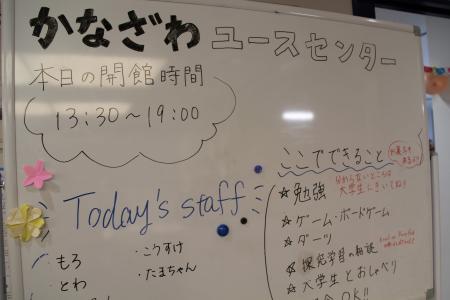 かなざわユースセンター
本日の開館時間
13:30～19:00
ここでできること
☆勉強
分からないところは
大学生にきいてね!!
☆ゲーム・ボードゲーム
☆ダーツ
☆探究学習の相談
☆大学生とおしゃべり
Today's staff
・もろ
・こうすけ
・とわ
・たまちゃん